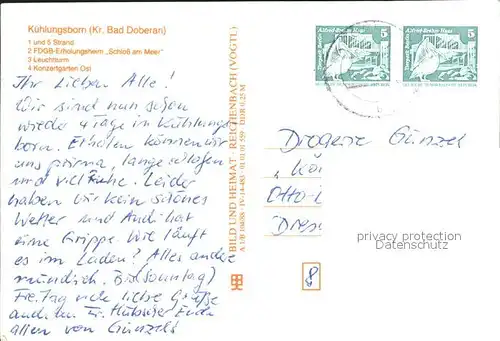 Kühlungsborn (Kr. Bad Doberan)
1 und 5 Strand
2 FDGB-Erholungsheim „Schloß am Meer"
3 Leuchtturm
4 Konzertgarten Ost
Ihr Lieben Alle!
Wir sind nun schon
wieder 4 Tage in Kühlungs-
born. Erholen können wir
uns prima, lange schlafen
und viel Ruhe. Leider
haben wir kein schönes
Wetter und Andi hat
eine Grippe. Wie läuft
es im Laden? Alles andere
mündlich. Bis (Sonntag)
Freitag viele liebe Grüße
auch an Fr. Hübner Ende
allen von Günzels
BILD UND HEIMAT REICHENBACH (VOGTL)
A 1/B IV-14-483 01 01 01 559 DDR 0,25 M
Alfred-Brehm-Haus
5
Alfred-Brehm-Haus
5
Drogerie Günzel
Otto-
Dres
privacy protection
www.oldthing.com
8